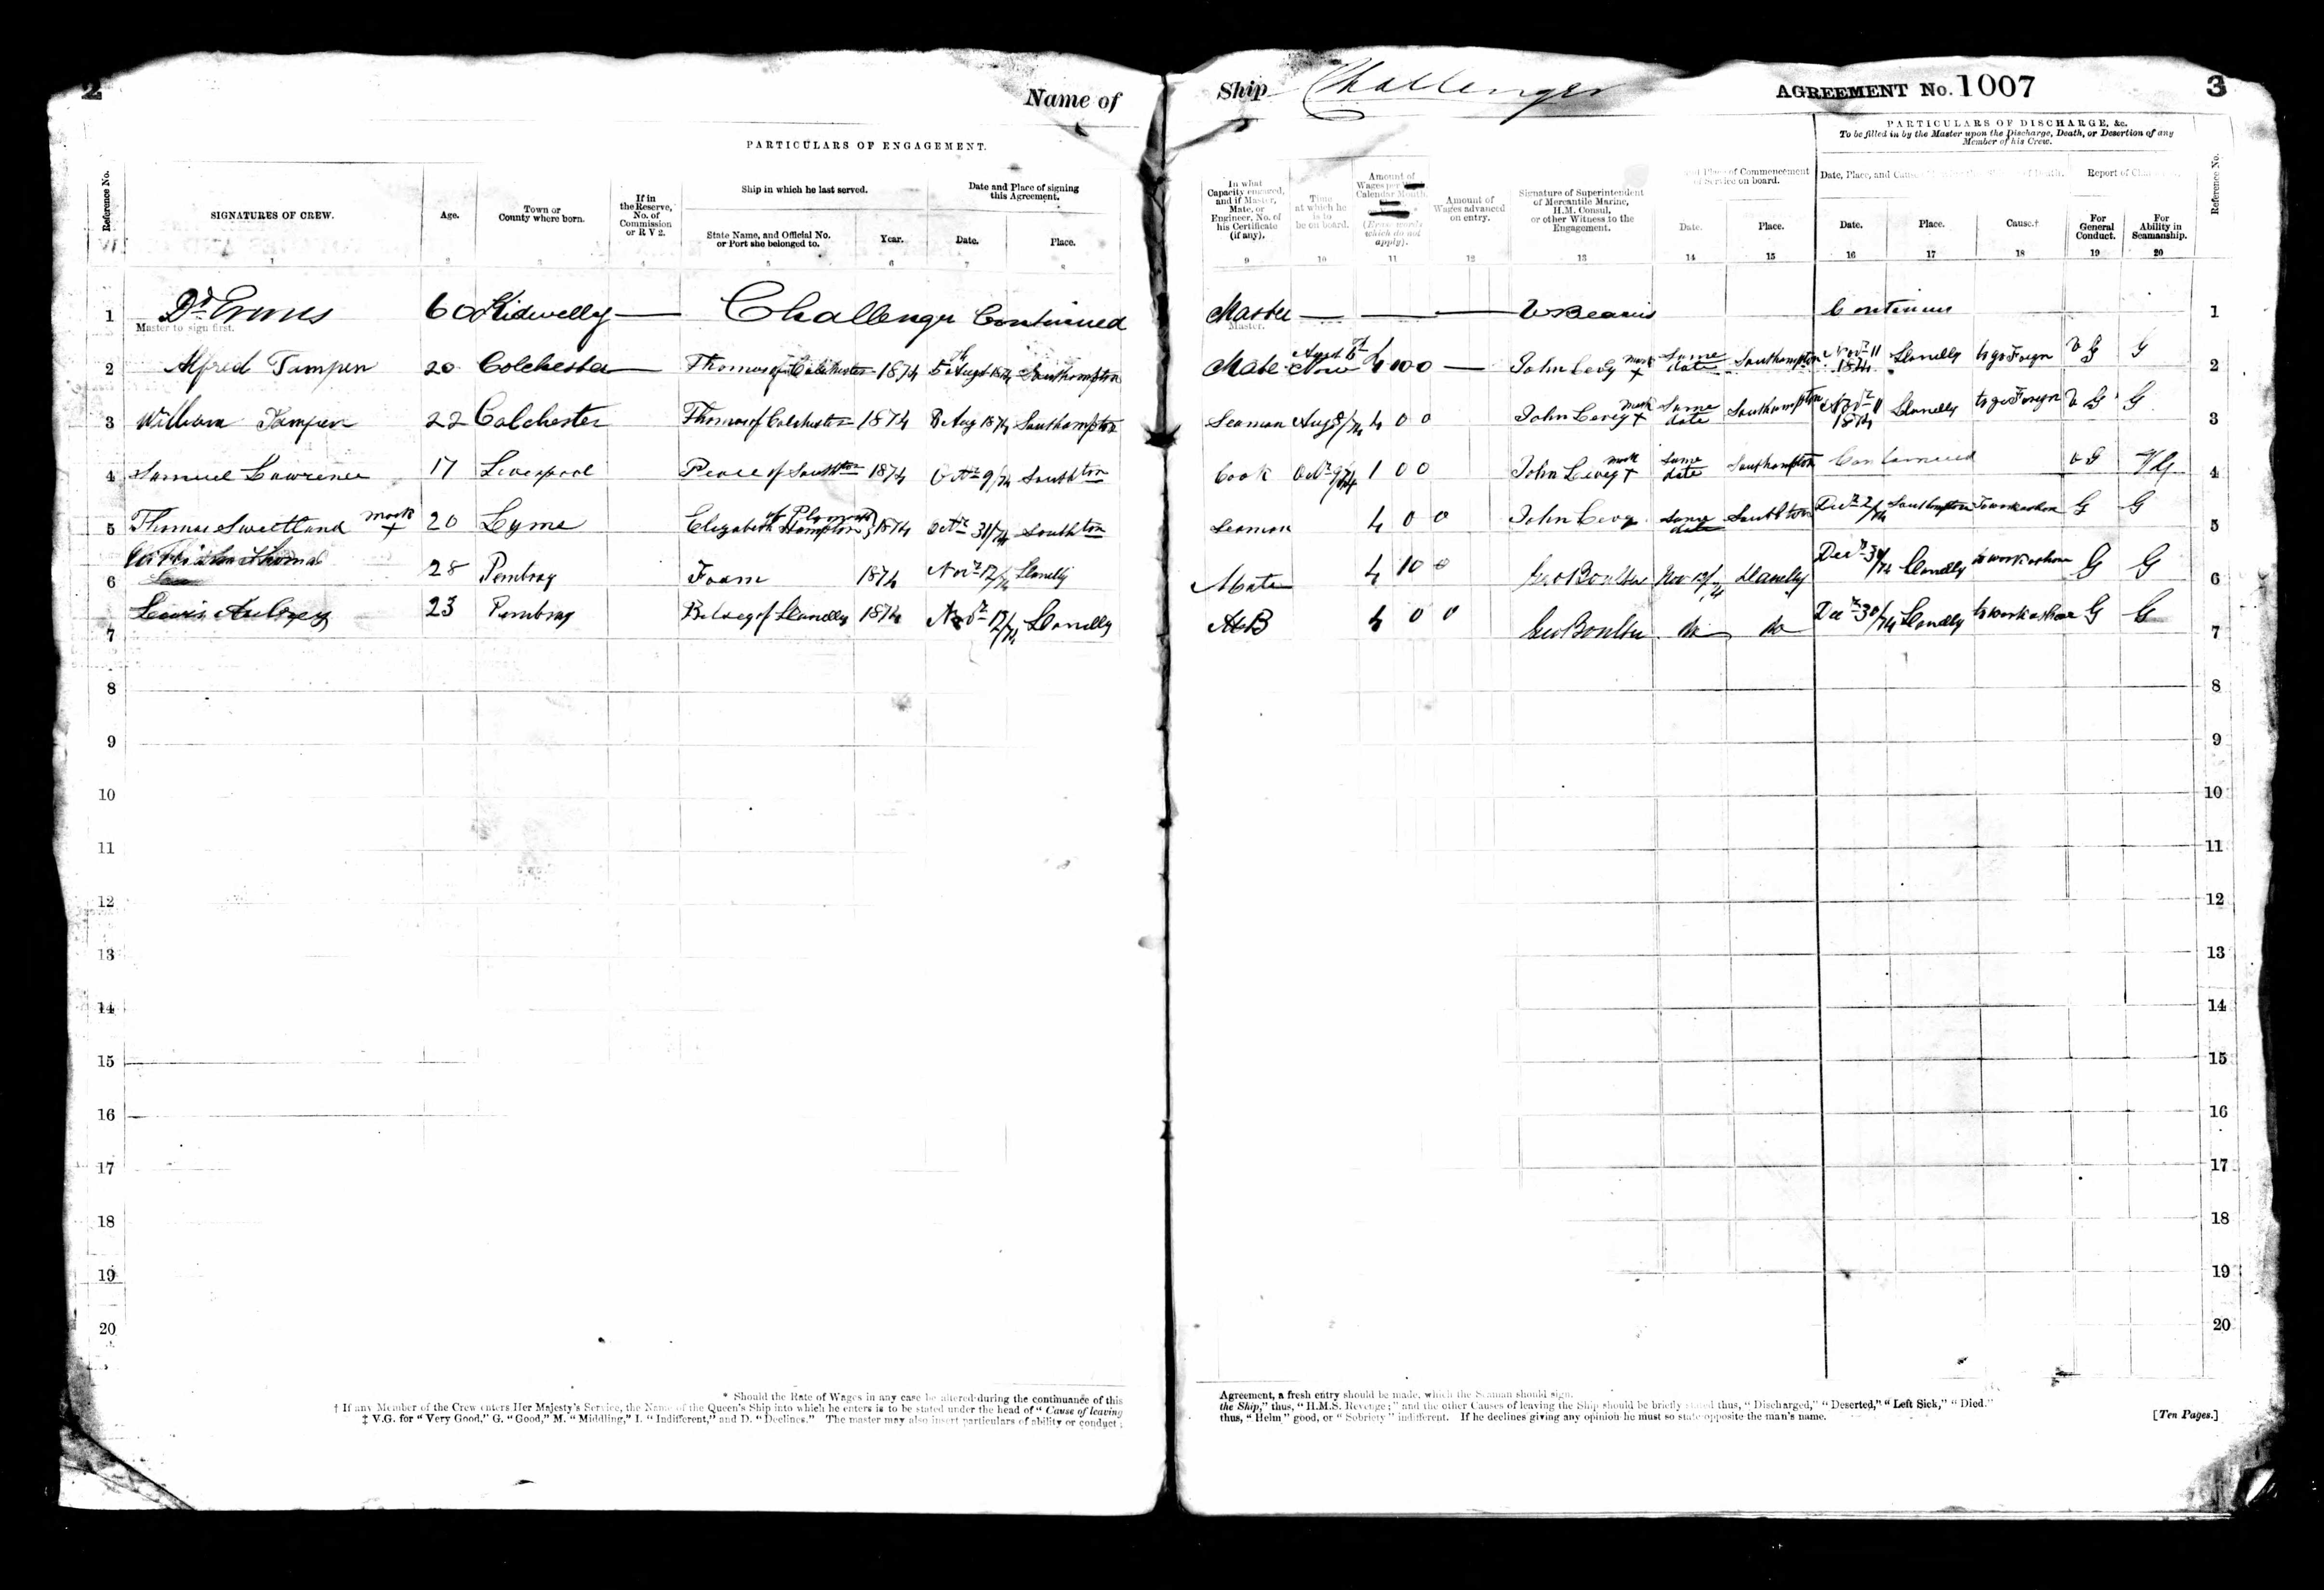 2 Name of
Ship Challenger AGREEMENT No. 1007 3
PARTICULARS OF ENGAGEMENT.
PARTICULARS OF DISCHARGE, &c.
To be filled in by the Master upon the Discharge, Death, or Desertion of any
Member of his Crew.
Reference No.
SIGNATURES OF CREW.
Age.
Town or
County where born.
If in
the Reserve,
No. of
Commission
or R V 2.
Ship in which he last served.
State Name, and Official No.
or Port she belonged to.
Year.
Date and Place of signing
this Agreement.
Date.
Place.
In what
Capacity engaged,
and if Master,
Mate, or
Engineer, No. of
his Certificate
(if any).
Time
at which he
is to
be on board.
Amount of
Wages per
Calendar Month,
(Erase words
which do not
apply).
Amount of
Wages advanced
on entry.
Signature of Superintendent
of Mercantile Marine,
H.M. Consul,
or other Witness to the
Engagement.
Place of Commencement
of Service on board.
Date.
Place.
Date, Place, and Cause of Death.
Date.
Place.
Cause.†
Report of
For
General
Conduct.
For
Ability in
Seamanship.
Reference No.
1 2 3 4 5 6 7 8 9 10 11 12 13 14 15 16 17 18 19 20
1 Dd Evans 60 Kidwelly — Challenger Continued Master — — — Continues 1
Master to sign first. Master.
2 Alfred Tampen 20 Colchester — Thomas of Colchester 1874 5th Augst 1874 Southampton Mate Augst 6th 4 10 0 — John Levey mark + Same date Southampton Novr 11 1874 Llanelly to go Foreign V G G 2
3 William Tampen 22 Colchester Thomas of Colchester 1874 8 Aug 1874 Southampton Seaman Aug 8/74 4 0 0 John Levey mark + Same date Southampton Novr 11 1874 Llanelly to go Foreign V G G 3
4 Samuel Lawrence 17 Liverpool Peace of Southton 1874 Octr 9/74 Southton Cook Octr 9/74 1 0 0 John Levey mark + Same date Southampton Continued V G V G 4
5 Thomas Sweetland mark + 20 Lyme Elizabeth Hampton of Plymouth 1874 Octr 31/74 Southton Seaman 4 0 0 John Levey Same date Southton Southampton To work ashore G G 5
6 Thomas 28 Pembrey Foam 1874 Novr 12/74 Llanelly Mate 4 10 0 Geo Boulter Nov 12/74 Llanelly Decr 30/74 Llanelly to work ashore G G 6
7 Lewis Aubrey 23 Pembrey Betsey of Llanelly 1874 Novr 12/74 Llanelly AB 4 0 0 Geo Boulter do do Decr 30/74 Llanelly to work ashore G G 7
8 8
9 9
10 10
11 11
12 12
13 13
14 14
15 15
16 16
17 17
18 18
19 19
20 20
* Should the Rate of Wages in any case be altered during the continuance of this
† If any Member of the Crew enters Her Majesty's Service, the Name of the Queen's Ship into which he enters is to be stated under the head of "Cause of leaving
‡ V.G. for "Very Good," G. "Good," M. "Middling," I. "Indifferent," and D. "Declines." The master may also insert particulars of ability or conduct;
Agreement, a fresh entry should be made, which the Seaman should sign.
the Ship," thus, "H.M.S. Revenge;" and the other Causes of leaving the Ship should be briefly stated thus, "Discharged," "Deserted," "Left Sick," "Died."
thus, "Helm" good, or "Sobriety" indifferent. If he declines giving any opinion he must so state opposite the man's name.
[Ten Pages.]